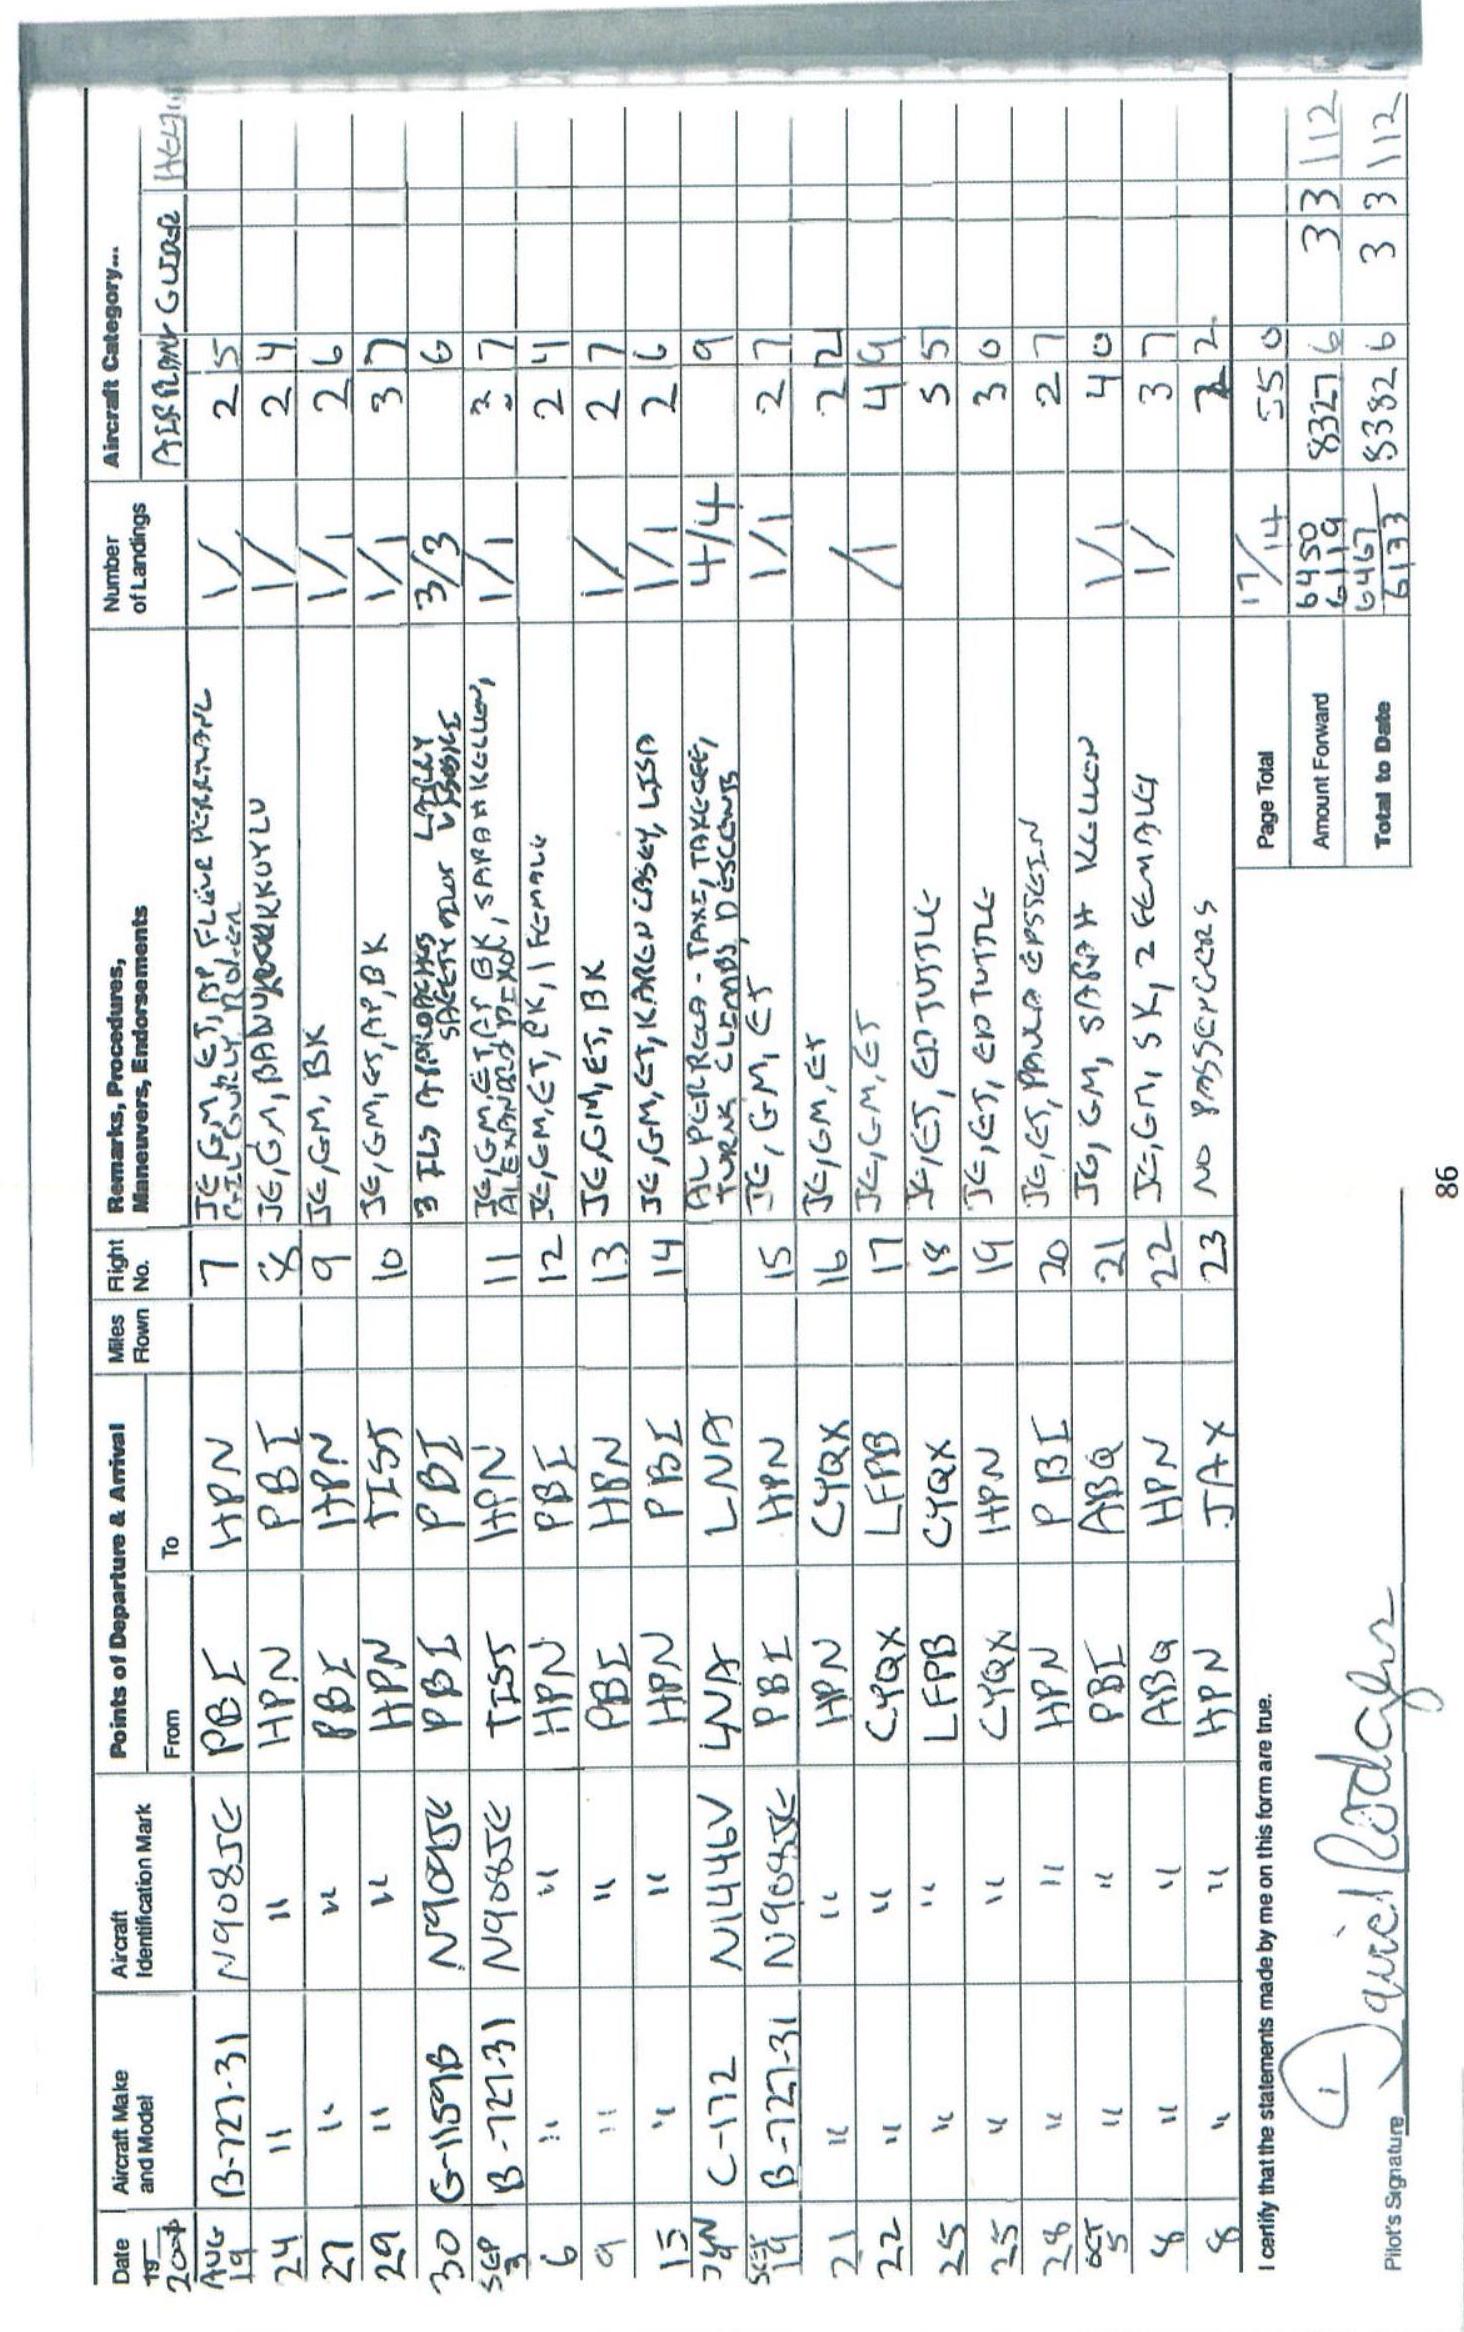 Date 19 2001 | Aircraft Make and Model | Aircraft Identification Mark | Points of Departure & Arrival From | To | Miles Flown | Flight No. | Remarks, Procedures, Maneuvers, Endorsements | Number of Landings | Aircraft Category... AIRPLANE | GLIDER
AUG 19 | B-727-31 | N908JE | PBI | HPN | 7 | JE, GM, ET, AP, | 1/ | 2 5
24 | " | " | HPN | PBI | 8 | JE, GM, | 1/ | 2 4
27 | " | " | PBI | HPN | 9 | JE, GM, BK | 1/1 | 2 6
29 | " | " | HPN | TIST | 10 | JE, GM, ET, AP, BK | 1/1 | 3 7
30 | G-1159B | N909JE | PBI | PBI | 3 ILS APPROACHES SAFETY PILOT LARRY | 3/3 | 6
SEP 3 | B-727-31 | N908JE | TIST | HPN | 11 | JE, GM, ET, BK, SARAH KELLEN, | 1/1 | 7
6 | " | " | HPN | PBI | 12 | JE, GM, ET, BK, 1 FEMALE | 2 4
9 | " | " | PBI | HPN | 13 | JE, GM, ET, BK | 1/ | 2 7
15 | " | " | HPN | PBI | 14 | JE, GM, ET, KAREN CASEY, LISA | 1/1 | 2 6
C-172 | N1446V | LNA | LNA | AL PERRELLA - TAXI, TURNS, CLIMBS, DESCENTS | 4/4 | 9
19 | B-727-31 | N908JE | PBI | HPN | 15 | JE, GM, ET | 1/1 | 2 7
21 | " | " | HPN | CYQX | 16 | JE, GM, ET | 2 2
22 | " | " | CYQX | LFPB | 17 | JE, GM, ET | /1 | 4 9
25 | " | " | LFPB | CYQX | 18 | JE, ET, ED TUTTLE | 5 5
25 | " | " | CYQX | HPN | 19 | JE, ET, ED TUTTLE | 3 0
28 | " | " | HPN | PBI | 20 | JE, ET, PAULA EPSTEIN | 2 7
OCT 5 | " | " | PBI | ABQ | 21 | JE, GM, SARAH KELLEN | 1/1 | 4 0
8 | " | " | ABQ | HPN | 22 | JE, GM, SK, 2 FEMALES | 1/ | 3 7
8 | " | " | HPN | JAX | 23 | NO PASSENGERS | 2
I certify that the statements made by me on this form are true.
Page Total | 17/14 | 55 0
Amount Forward | 6450 6119 | 8327 6 | 3 3 | 112
Total to Date | 6467 6133 | 8382 6 | 3 3 | 112
Pilot's Signature David Rodgers
86